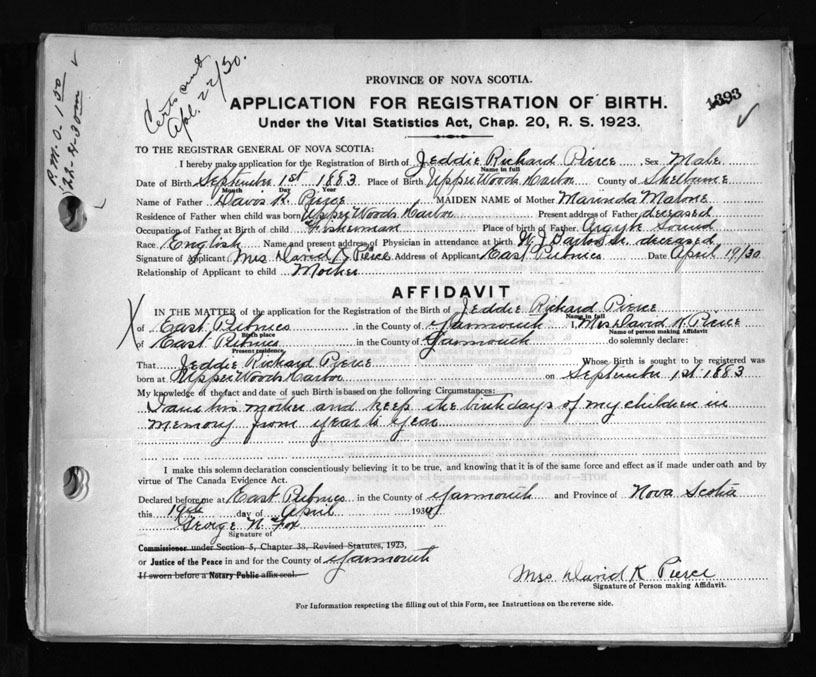 Certs sent
Apl. 22/30.
R.M.O. 1 50
PROVINCE OF NOVA SCOTIA.
1393
APPLICATION FOR REGISTRATION OF BIRTH.
Under the Vital Statistics Act, Chap. 20, R. S. 1923.
TO THE REGISTRAR GENERAL OF NOVA SCOTIA:
I hereby make application for the Registration of Birth of Jeddie Richard Pierce Sex Male
Name in full
Date of Birth September 1st 1883 Place of Birth Upper Woods Harbor County of Shelburne
Month Day Year
Name of Father David K. Pierce MAIDEN NAME of Mother Marinda Malone
Residence of Father when child was born Upper Woods Harbor Present address of Father deceased
Occupation of Father at Birth of child Fisherman Place of birth of Father Argyle Sound
Race English Name and present address of Physician in attendance at birth deceased
Signature of Applicant Mrs David K Pierce Address of Applicant East Pubnico Date April 19/30
Relationship of Applicant to child Mother
AFFIDAVIT
IN THE MATTER of the application for the Registration of the Birth of Jeddie Richard Pierce
Name in full
of East Pubnico in the County of Yarmouth I, Mrs David K Pierce
Birth place Name of person making Affidavit
of East Pubnico in the County of Yarmouth do solemnly declare:
Present residence
That Jeddie Richard Pierce Whose Birth is sought to be registered was
born at Upper Woods Harbor on September 1st 1883
My knowledge of the fact and date of such Birth is based on the following Circumstances:
I am his mother and keep the birthdays of my children in
Memory from year to year
I make this solemn declaration conscientiously believing it to be true, and knowing that it is of the same force and effect as if made under oath and by
virtue of The Canada Evidence Act.
Declared before me at East Pubnico in the County of Yarmouth and Province of Nova Scotia
this 19th day of April 1930
George N. Fox
Signature of
Commissioner under Section 5, Chapter 38, Revised Statutes, 1923,
or Justice of the Peace in and for the County of Yarmouth
If sworn before a Notary Public affix seal.
Mrs David K Pierce
Signature of Person making Affidavit.
For Information respecting the filling out of this Form, see Instructions on the reverse side.